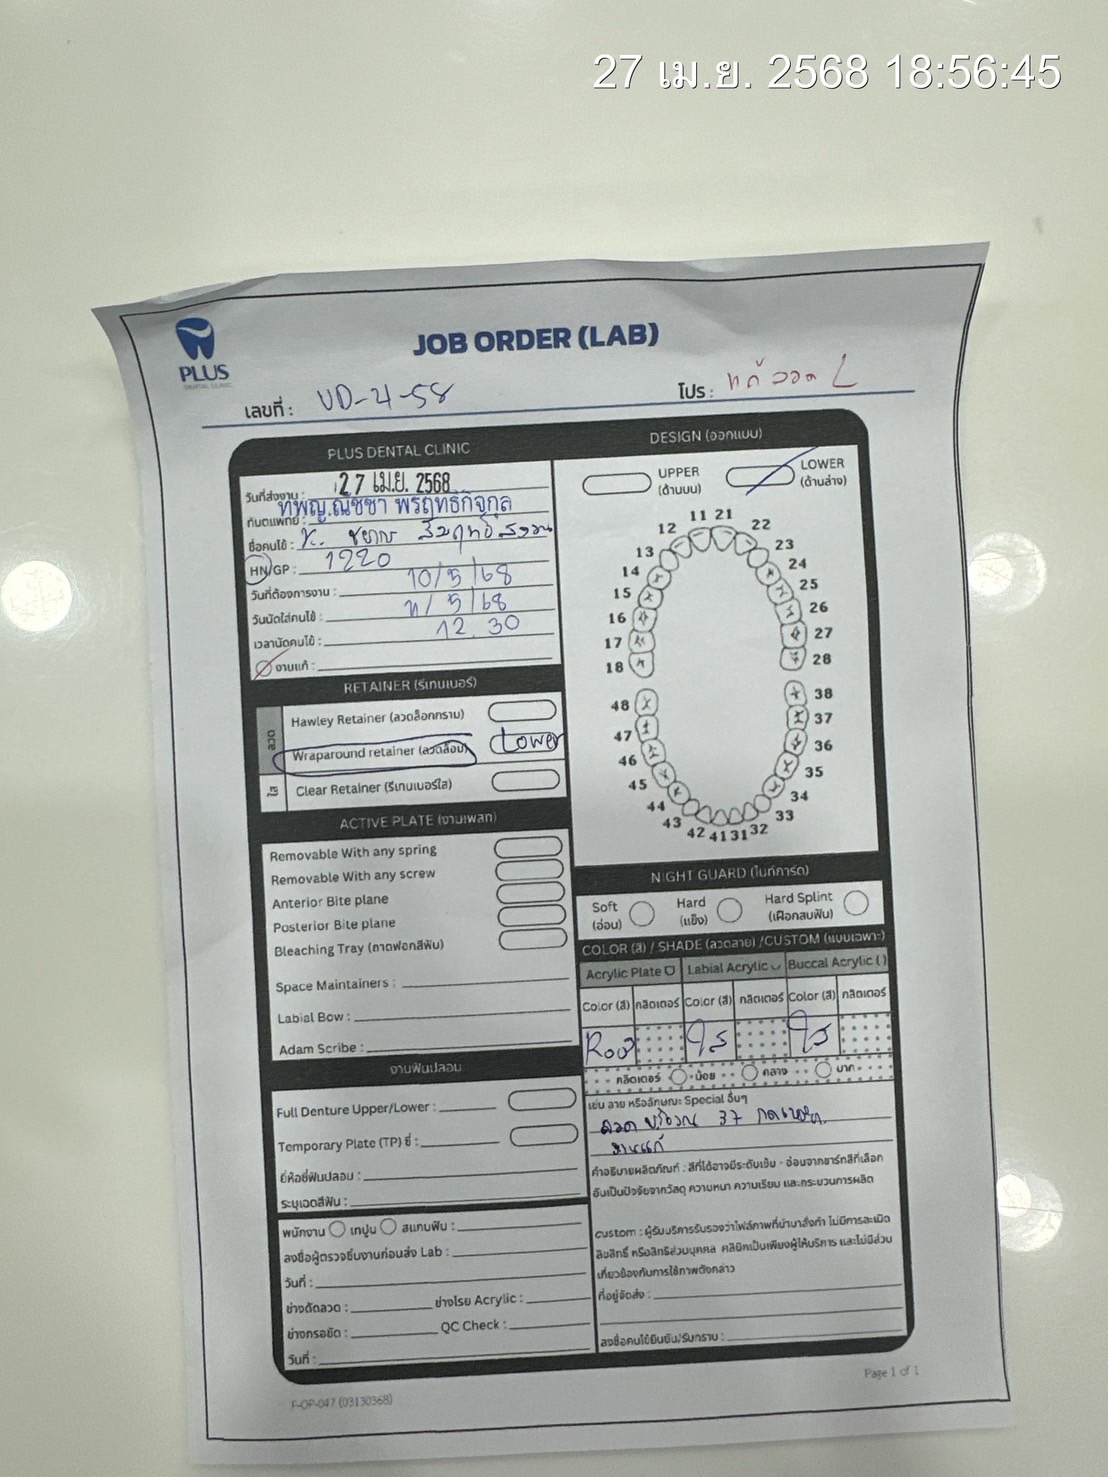 27 เม.ย. 2568 18:56:45
PLUS
DENTAL CLINIC
JOB ORDER (LAB)
เลขที่ : UD-4-58
โปร : แก้ลวด L
PLUS DENTAL CLINIC
วันที่ส่งงาน : 27 เม.ย. 2568
ทันตแพทย์ : ทพญ.ณัชชา พรฤทธิ์กิจกุล
ชื่อคนไข้ :
HN/GP : 1220
วันที่ต้องการงาน : 10/5/68
วันนัดใส่คนไข้ : 11/5/68
เวลานัดคนไข้ : 12.30
งานแก้ :
RETAINER (รีเทนเนอร์)
ลวด
Hawley Retainer (ลวดล็อกกราม)
Wraparound retainer (ลวดล็อบ) Lower
ใส
Clear Retainer (รีเทนเนอร์ใส)
ACTIVE PLATE (งานเพลท)
Removable With any spring
Removable With any screw
Anterior Bite plane
Posterior Bite plane
Bleaching Tray (ถาดฟอกสีฟัน)
Space Maintainers :
Labial Bow :
Adam Scribe :
งานฟันปลอม
Full Denture Upper/Lower :
Temporary Plate (TP) ซี่ :
ยี่ห้อซี่ฟันปลอม :
ระบุเฉดสีฟัน :
พนักงาน เทปูน สแกนฟัน :
ลงชื่อผู้ตรวจชิ้นงานก่อนส่ง Lab :
วันที่ :
ช่างดัดลวด : ช่างโรย Acrylic :
ช่างกรอขัด : QC Check :
วันที่ :
DESIGN (ออกแบบ)
UPPER (ด้านบน)
LOWER (ด้านล่าง)
11 21
12 22
13 23
14 24
15 25
16 26
17 27
18 28
48 38
47 37
46 36
45 35
44 34
43 33
42 41 31 32
NIGHT GUARD (ไนท์การ์ด)
Soft (อ่อน)
Hard (แข็ง)
Hard Splint (เฝือกสบฟัน)
COLOR (สี) / SHADE (ลวดลาย) /CUSTOM (แบบเฉพาะ)
Acrylic Plate Labial Acrylic Buccal Acrylic ( )
Color (สี) กลิตเตอร์ Color (สี) กลิตเตอร์ Color (สี) กลิตเตอร์
ใส ใส
กลิตเตอร์ น้อย กลาง มาก
เช่น ลาย หรือลักษณะ Special อื่นๆ
ลวด บริเวณ 37
งานแก้
คำอธิบายผลิตภัณฑ์ : สีที่ได้อาจมีระดับเข้ม - อ่อนจากชาร์ทสีที่เลือก
อันเป็นปัจจัยจากวัสดุ ความหนา ความเรียบ และกระบวนการผลิต
custom : ผู้รับบริการรับรองว่าไฟล์ภาพที่นำมาสั่งทำ ไม่มีการละเมิด
ลิขสิทธิ์ หรือสิทธิส่วนบุคคล คลินิกเป็นเพียงผู้ให้บริการ และไม่มีส่วน
เกี่ยวข้องกับการใช้ภาพดังกล่าว
ที่อยู่จัดส่ง :
ลงชื่อคนไข้ยืนยัน/รับทราบ :
F-OP-047 (03130368)
Page 1 of 1